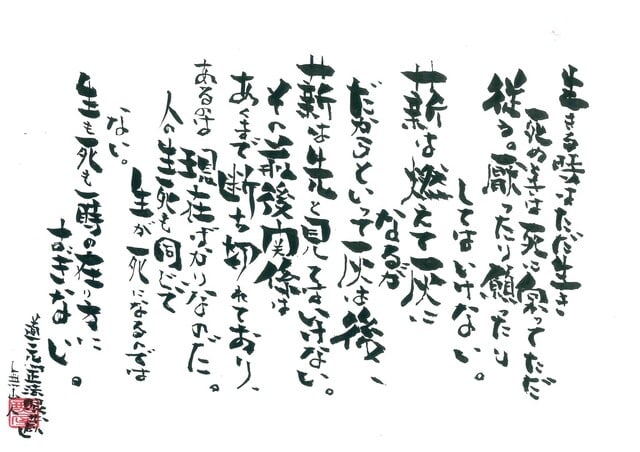 生きる時はただ生き
死ぬときは死に向ってただ
従う。厭ったり願ったり
してはいけない。
薪は燃えて灰に
なるが
だからといって灰は後、
薪は先と見てはいけない。
その前後関係は
あくまで断ち切れており、
あるのは現在ばかりなのだ。
人の生死も同じで
生が死になるのでは
ない。
生も死も一時の在り方に
すぎない。
道元正法眼蔵